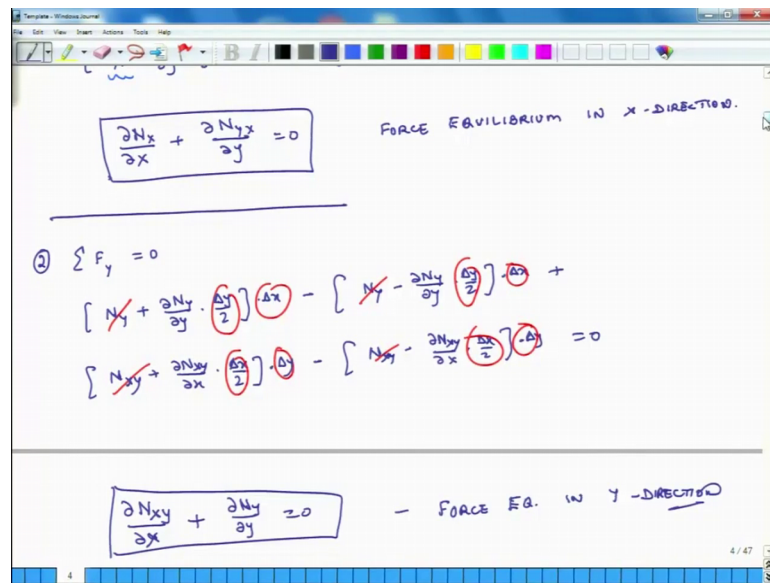 Template - Windows Journal
File Edit View Insert Actions Tools Help
B I
∂Nx/∂x + ∂Nyx/∂y = 0 FORCE EQUILIBRIUM IN X-DIRECTION.
② Σ Fy = 0
[ Ny + ∂Ny/∂y · Δy/2 ] · Δx - [ Ny - ∂Ny/∂y · Δy/2 ] · Δx +
[ Nxy + ∂Nxy/∂x · Δx/2 ] · Δy - [ Nxy - ∂Nxy/∂x · Δx/2 ] · Δy = 0
∂Nxy/∂x + ∂Ny/∂y = 0 - FORCE EQ. IN Y-DIRECTION
4 / 47
4